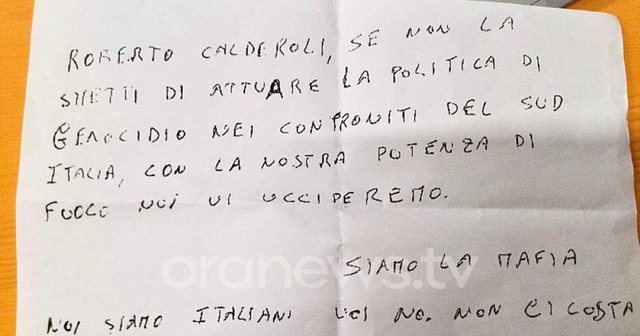 ROBERTO CALDEROLI, SE NON LA
SMETTI DI ATTUARE LA POLITICA DI
GENOCIDIO NEI CONFRONITI DEL SUD
ITALIA, CON LA NOSTRA POTENZA DI
FUOCO NOI VI UCCIDEREMO.
oranews.tv
SIAMO LA MAFIA
NOI SIAMO ITALIANI VOI NO. NON CI COSTA